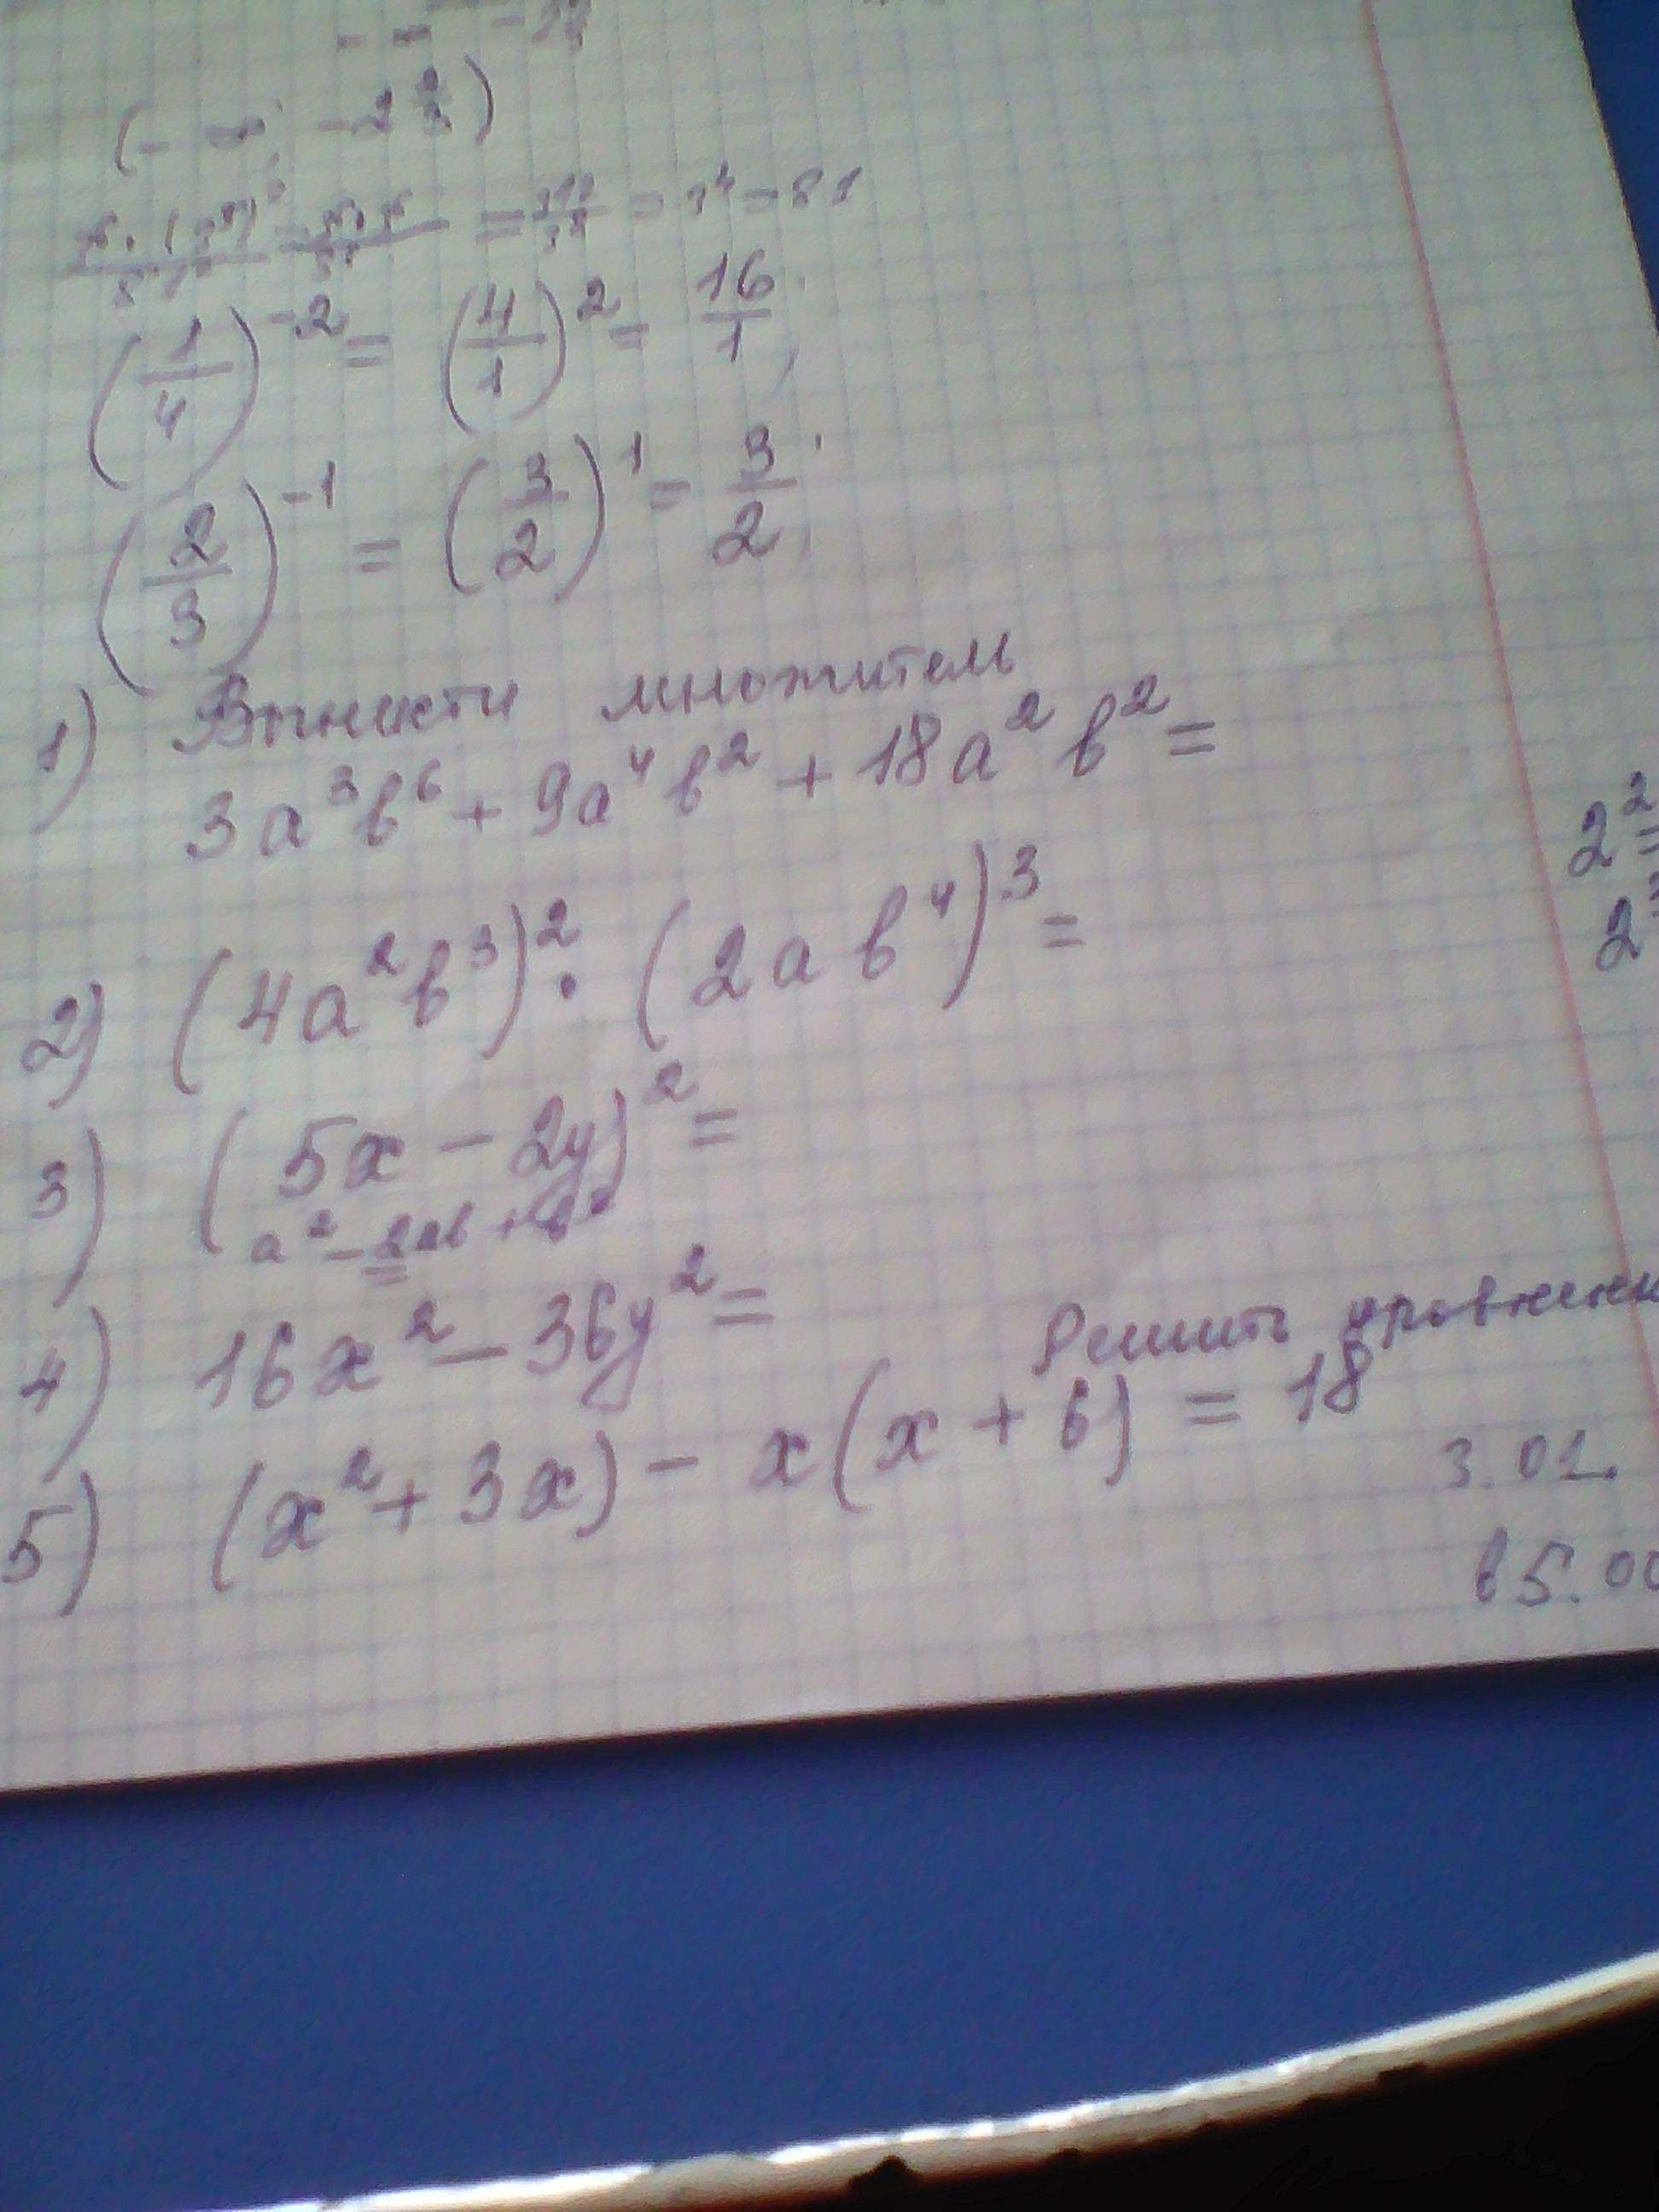 (- ∞; -2 2/3)
= 3^12/3^8 = 3^4 = 81
(1/4)^-2 = (4/1)^2 = 16/1
(2/3)^-1 = (3/2)^1 = 3/2
1) Вынести множитель
3a^3b^6 + 9a^4b^2 + 18a^2b^2 =
2^2=
2) (4a^2b^3)^2 · (2ab^4)^3 =
3) (5x - 2y)^2 =
a^2 - 2ab + b^2
4) 16x^2 - 36y^2 =
Решить
5) (x^2 + 3x) - x(x + 6) = 18
3.01.
в 5.00